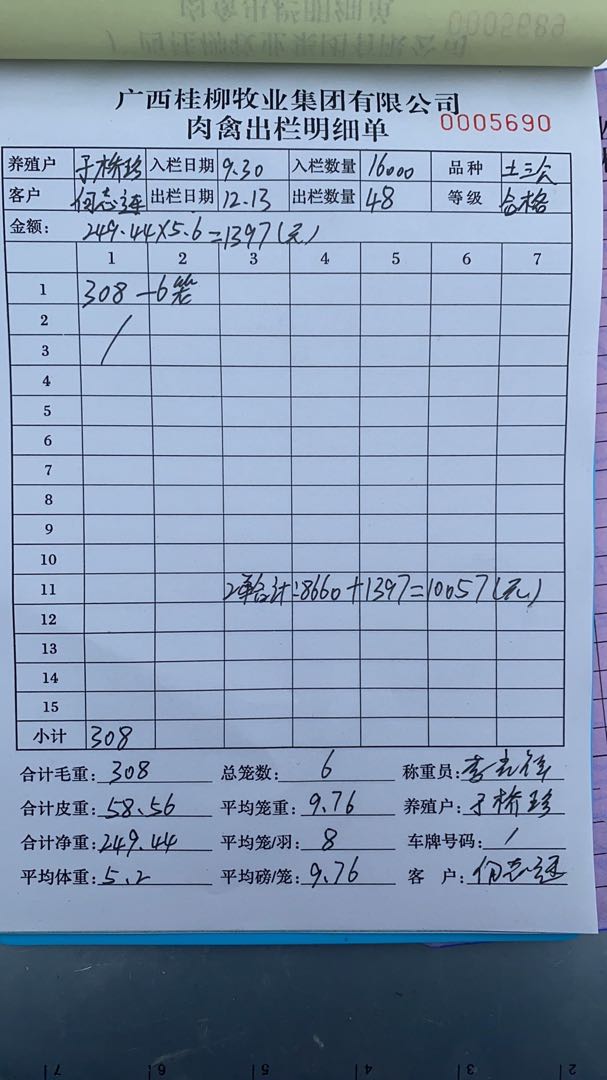 0005689
广西桂柳牧业集团有限公司
肉禽出栏明细单 0005690
养殖户 于桥珍 入栏日期 9.30 入栏数量 16000 品种 土三公
客户 何志 出栏日期 12.13 出栏数量 48 等级 合格
金额: 249.44×5.6=1397(元)
1 2 3 4 5 6 7
1 308-6笼
2 /
3
4
5
6
7
8
9
10
11 2单合计:8660+1397=10057(元)
12
13
14
15
小计 308
合计毛重: 308 总笼数: 6 称重员: 李
合计皮重: 58.56 平均笼重: 9.76 养殖户: 于桥珍
合计净重: 249.44 平均笼/羽: 8 车牌号码: /
平均体重: 5.2 平均磅/笼: 9.76 客 户: 何志
7 6 5 4 3 2